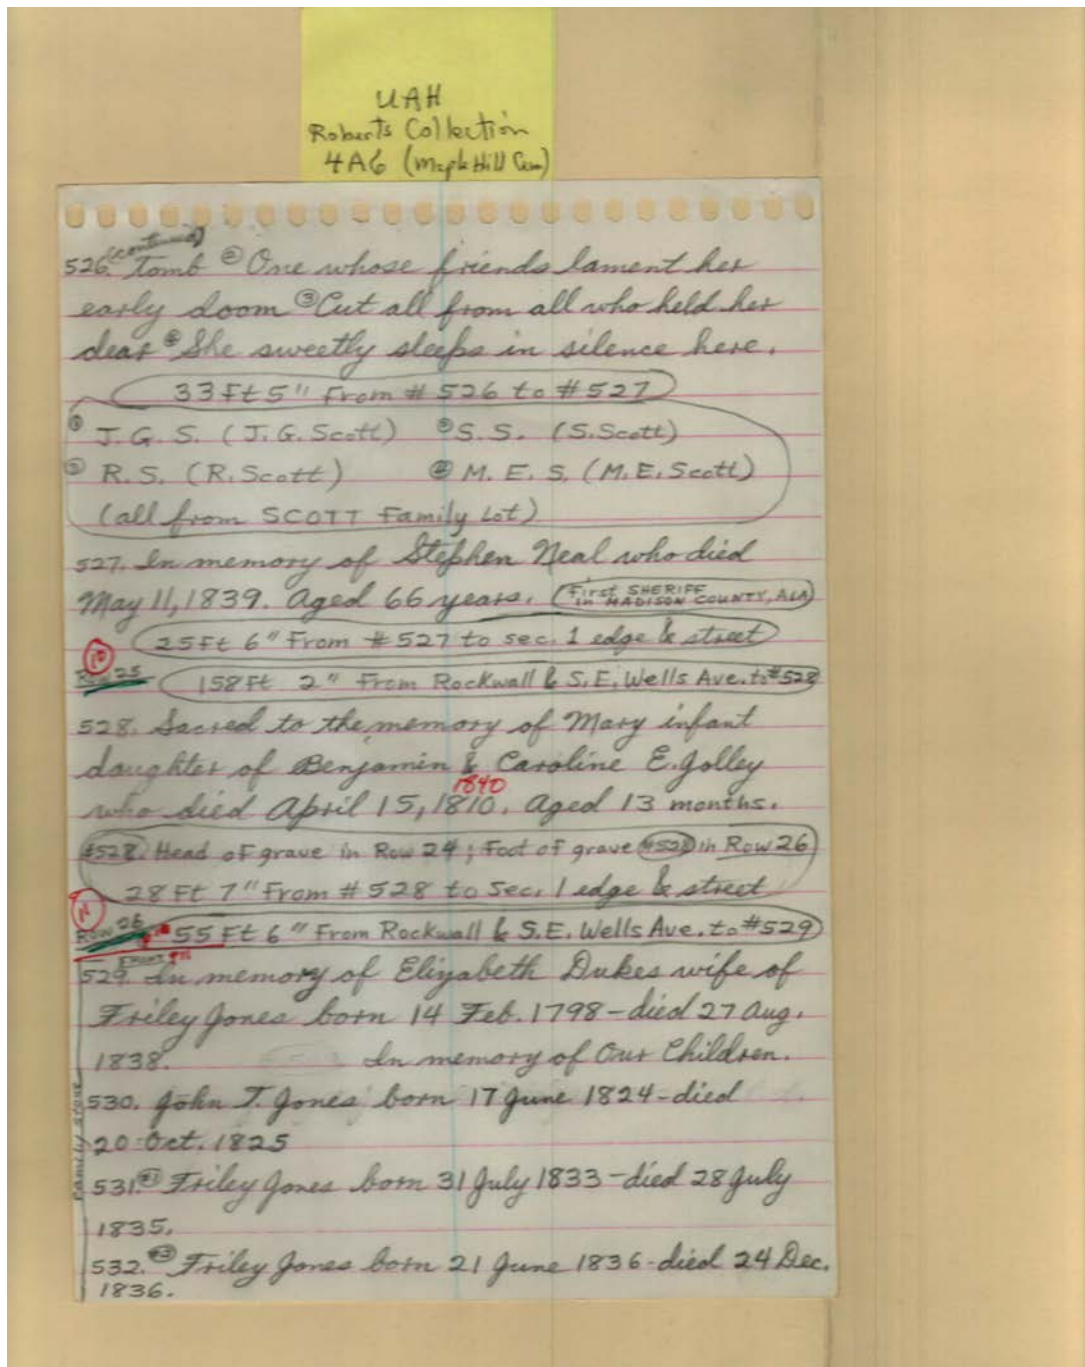 UAH
Roberts Collection
4A6 (Maple Hill Cem)
(continued)
526. Tomb ② One whose friends lament her
early doom ③ Cut all from all who held her
dear ④ She sweetly sleeps in silence here.
33 Ft 5" From # 526 to # 527
① J. G. S. (J. G. Scott) ③ S. S. (S. Scott)
② R. S. (R. Scott) ④ M. E. S. (M. E. Scott)
(all from SCOTT Family Lot)
527. In memory of Stephen Neal who died
May 11, 1839. Aged 66 years. (First SHERIFF
in MADISON COUNTY, ALA)
25 Ft 6" From # 527 to sec. 1 edge & street
10
Row 25 158 Ft 2" From Rockwall & S. E. Wells Ave. to #528
528. Sacred to the memory of Mary infant
daughter of Benjamin & Caroline E. Jolley
1840
who died April 15, 1810. Aged 13 months.
#528. Head of grave in Row 24; Foot of grave #528 in Row 26
28 Ft 7" From # 528 to Sec. 1 edge & street
11
Row 26 55 Ft 6" From Rockwall & S. E. Wells Ave. to #529
529. In memory of Elizabeth Dukes wife of
Friley Jones born 14 Feb. 1798 - died 27 Aug.
1838. In memory of Our Children.
Family stone
530. John T. Jones born 17 June 1824 - died
20 Oct. 1825
531. Friley Jones born 31 July 1833 - died 28 July
1835.
532. #3 Friley Jones born 21 June 1836 - died 24 Dec.
1836.